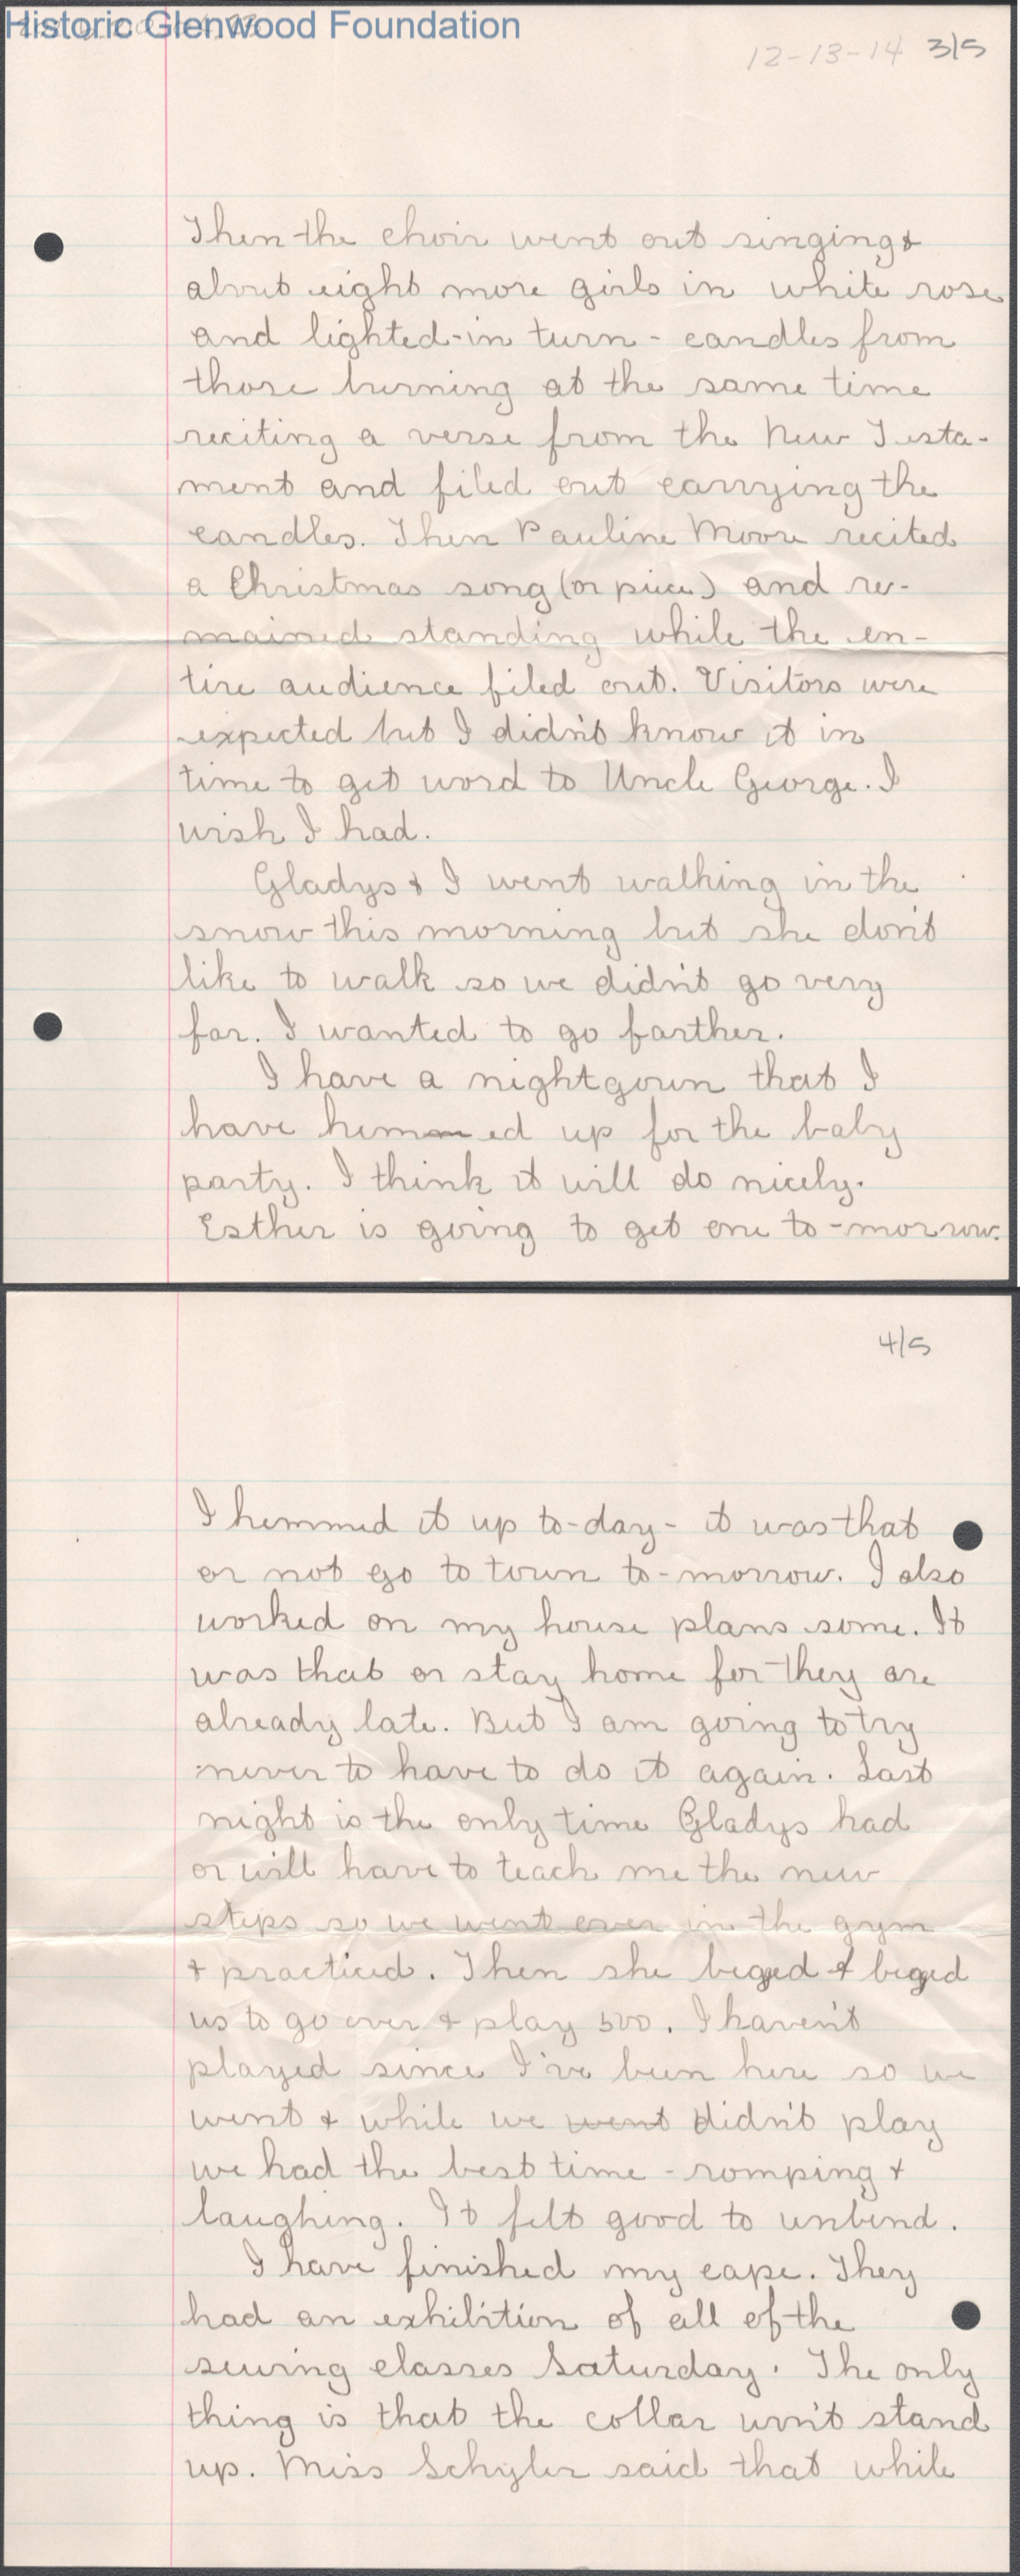 Historic Glenwood Foundation
12-13-14 3/5
Then the choir went out singing &
about eight more girls in white rose
and lighted-in turn - candles from
those burning at the same time
reciting a verse from the New Testa-
ment and filed out carrying the
candles. Then Pauline Moore recited
a Christmas song (or piece) and re-
mained standing while the en-
tire audience filed out. Visitors were
expected but I didn't know it in
time to get word to Uncle George. I
wish I had.
Gladys & I went walking in the
snow this morning but she don't
like to walk so we didn't go very
far. I wanted to go farther.
I have a nightgown that I
have hemmed up for the baby
party. I think it will do nicely.
Esther is going to get one to-morrow.
4/5
I hemmed it up to-day - it was that
or not go to town to-morrow. I also
worked on my house plans some. It
was that or stay home for they are
already late. But I am going to try
never to have to do it again. Last
night is the only time Gladys had
or will have to teach me the new
steps so we went over in the gym
& practiced. Then she beged & beged
us to go over & play 500. I haven't
played since I've been here so we
went & while we went didn't play
we had the best time - romping &
laughing. It felt good to unbend.
I have finished my cape. They
had an exhibition of all of the
sewing classes Saturday. The only
thing is that the collar won't stand
up. Miss Schyler said that while